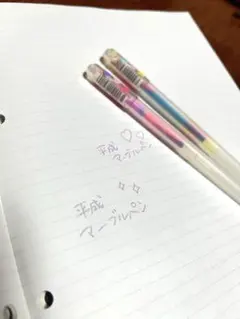 平成
マーブルペン
平成
マーブルペン